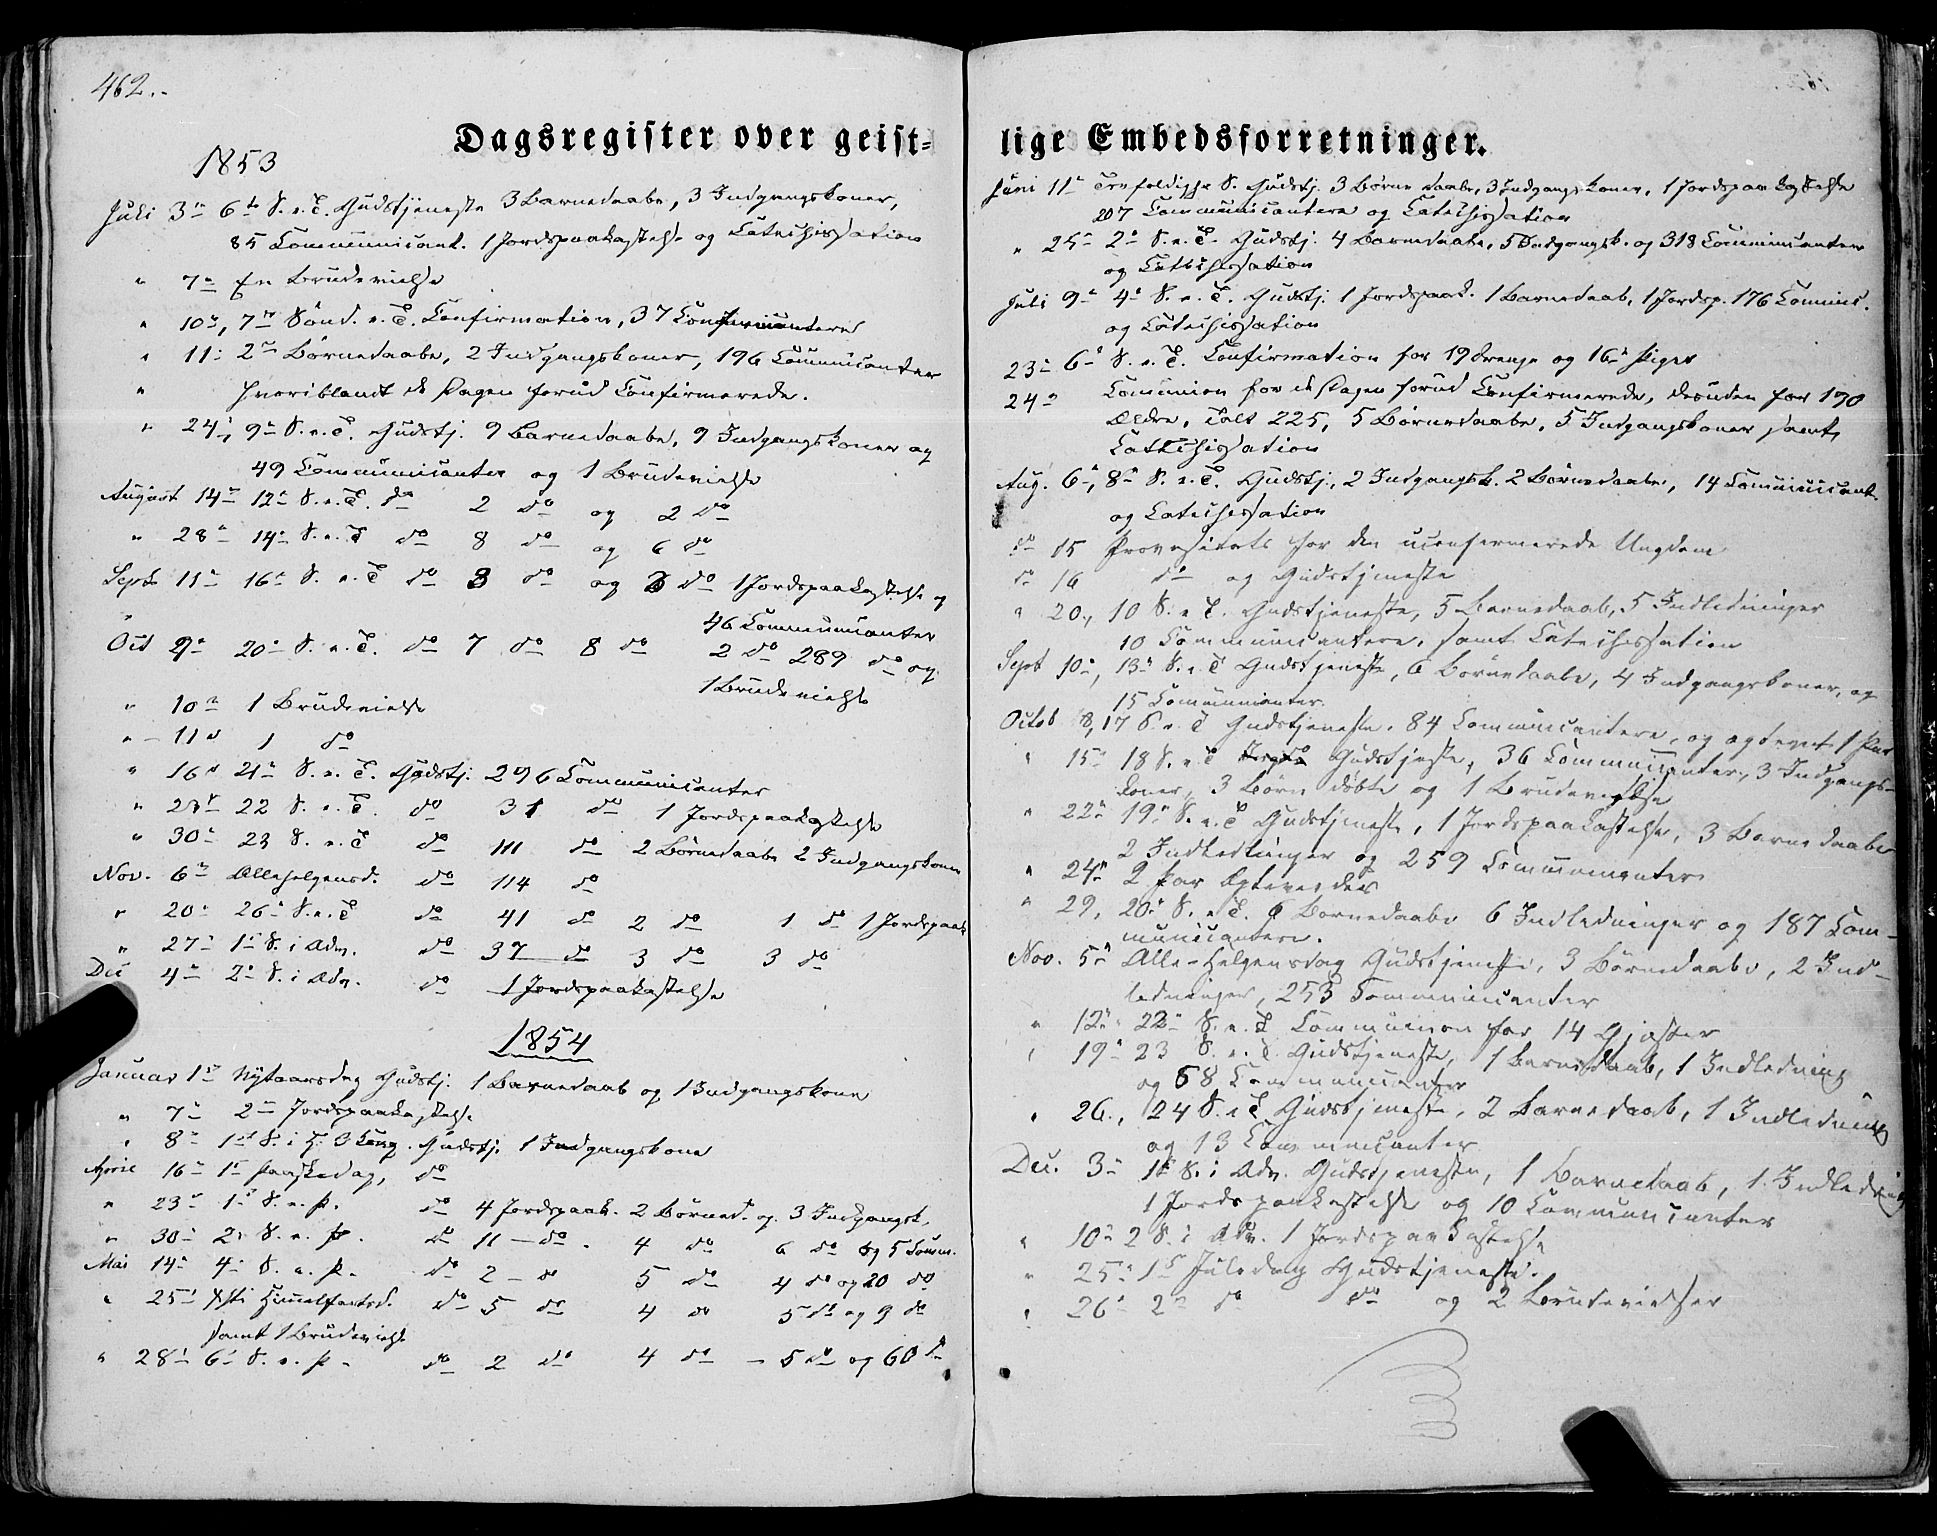 462.-
Dagsregister over geist-
1853
Juli 3die 6te S. e. T. Gudstjeneste 3 Barnedaabe, 3 Indgangskoner,
85 Communicant. 1 Jordspaakastelse og Catechisation
" 7de En Brudevielse
" 10de, 7de Sönd. e. T. Confirmation, 37 Confirmantere
" 11: 2de Börnedaabe, 2 Indgangskoner, 196 Communicanter
" hvoriblandt de Dagen forud Confirmerede.
" 24', 9de S. e. T. Gudstj. 9 Barnedaabe, 9 Indgangskoner og
49 Communicanter og 1 Brudevielse
August 14de 12te S. e. T. do 2 do og 2 do
" 28de 14de S. e. T do 8 do og 6 do
Septb 11te 16de S. e. T do 3 do og 3 do 1 Jordspaakastelse og
" 46 Communicanter
Oct 2den 20de S. e. T. do 7 do 8 do 2 do 289 do og
1 Brudevielse
" 10de 1 Brudevielse
" - 11te 1 do
" 16de 21de S. e. T. Gudstj. 296 Communicanter
" 23de 22 S. e. T. do 31 do 1 Jordspaakastelse
" 30te 23 S. e. T do 111 do 2 Börnedaabe 2 Indgangskoner
Nov. 6te Allehelgensd. do 114 do
" 20de 26de S. e. T do 41 do 2 do 1 do 1 Jordspaak
" 27de 1ste S. i Adv. do 37 do 3 do 3 do
Dec 4de 2den S. i Adv. do 1 Jordspaakastelse
1854
Januar 1ste Nytaarsdag Gudstj. 1 Barnedaab og 1 Indgangskone
" 7de 2de Jordspaakastelse
" 8de 1ste S. i H. 3 Kong. Gudstj. 1 Indgangskone
April 16de 1ste Paaskedag, do
" 23de 1ste S. e. P. do 4 Jordspaak. 2 Börned. og 3 Indgangsk.
" 30te 2den S. e. P. do 11 - do . 4 do 6 do og 5 Comm.
Mai 14de 4de S. e. P. do 2 - do 5 do 4 do og 20 do
" 25de Xsti Himmelfartsd. do 5 do 4 do 5 do og 9 do
samt 1 Brudevielse
" 28de 6te S. e. P. do 2 do 4 do - 5 do og 60 do
lige Embedsforretninger.
Juni 11te Trefoldighe S. Gudstj. 3 Börnedaabe, 3 Indgangskoner, 1 Jordspaakastelse
207 Communicantere og Catechisation
" 25de 2den S. e. T. Gudstj. 4 Barnedaabe, 5 Indgangsk. og 318 Communicantere
og Catechisation
Juli 9de 4de S. e. T. Gudstj. 1 Jordspaak. 1 Barnedaab, 1 Jordsp. 176 Commun.
og Catechisation
23de 6te S. e. T. Confirmation for 19 Drenge og 16de Piger
24de Communion for de Dagen forud Confirmerede, desuden for 190
Ældre, Talt 225, 5 Börnedaabe, 5 Indgangskoner samt
Catechisation
Aug. 6te, 8de S. e. T. Gudstj., 2 Indgangsk. 2 Börnedaabe, 14 Communicant.
og Catechisation
do 15 Provsevisitats for den uconfirmerede Ungdom
do 16 do og Gudstjeneste
" 20., 10 S. e. T. Gudstjeneste, 5 Barnedaab, 5 Indledninger
10 Communicantere, samt Catechisation
Sept 10de, 13de S. e. T Gudstjeneste, 6 Börnedaabe, 4 Indgangskoner, og
15 Communicanter.
Octob 8, 17 S. e. T Gudstjeneste. 84 Communicantere, og ægteviet 1 Par
" 15de 18 S. e. T Gudstjeste, 36 Communicanter, 3 Indgangs-
koner, 3 Börn döbte og 1 Brudevielse
" 22de 19de S. e. T Gudstjeneste, 1 Jordspaakastelse, 3 Barnedaabe
2 Indledninger og 259 Communicanter
" 24de 2 Par Ægteviedes
" 29, 20de S. e. T. 6 Barnedaabe 6 Indledninger og 187 Com-
municantere.
Nov. 5te Alle-Helgensdag Gudstjeneste, 3 Börnedaabe, 2 Ind-
ledninger, 253 Communicanter
" 12te 22de S. e. T. Communion for 14 Gjæster
" 19de 23 S. e. T. Gudstjeneste, 1 Barnedaab, 1 Indledning
og 58 Communicanter
" 26., 24 S. e T Gudstjeneste, 2 Barnedaab, 1 Indledning
og 13 Communicanter
Dec. 3de 1ste S. i Adv. Gudstjeneste, 1 Barnedaab, 1 Indledning
1 Jordspaakastelse og 10 Communicanter
" 10de 2 S. i Adv. 1 Jordspaakastelse
" 25de 1ste Juledag Gudstjeneste.
" 26de 2den do do og 2 Brudevielser